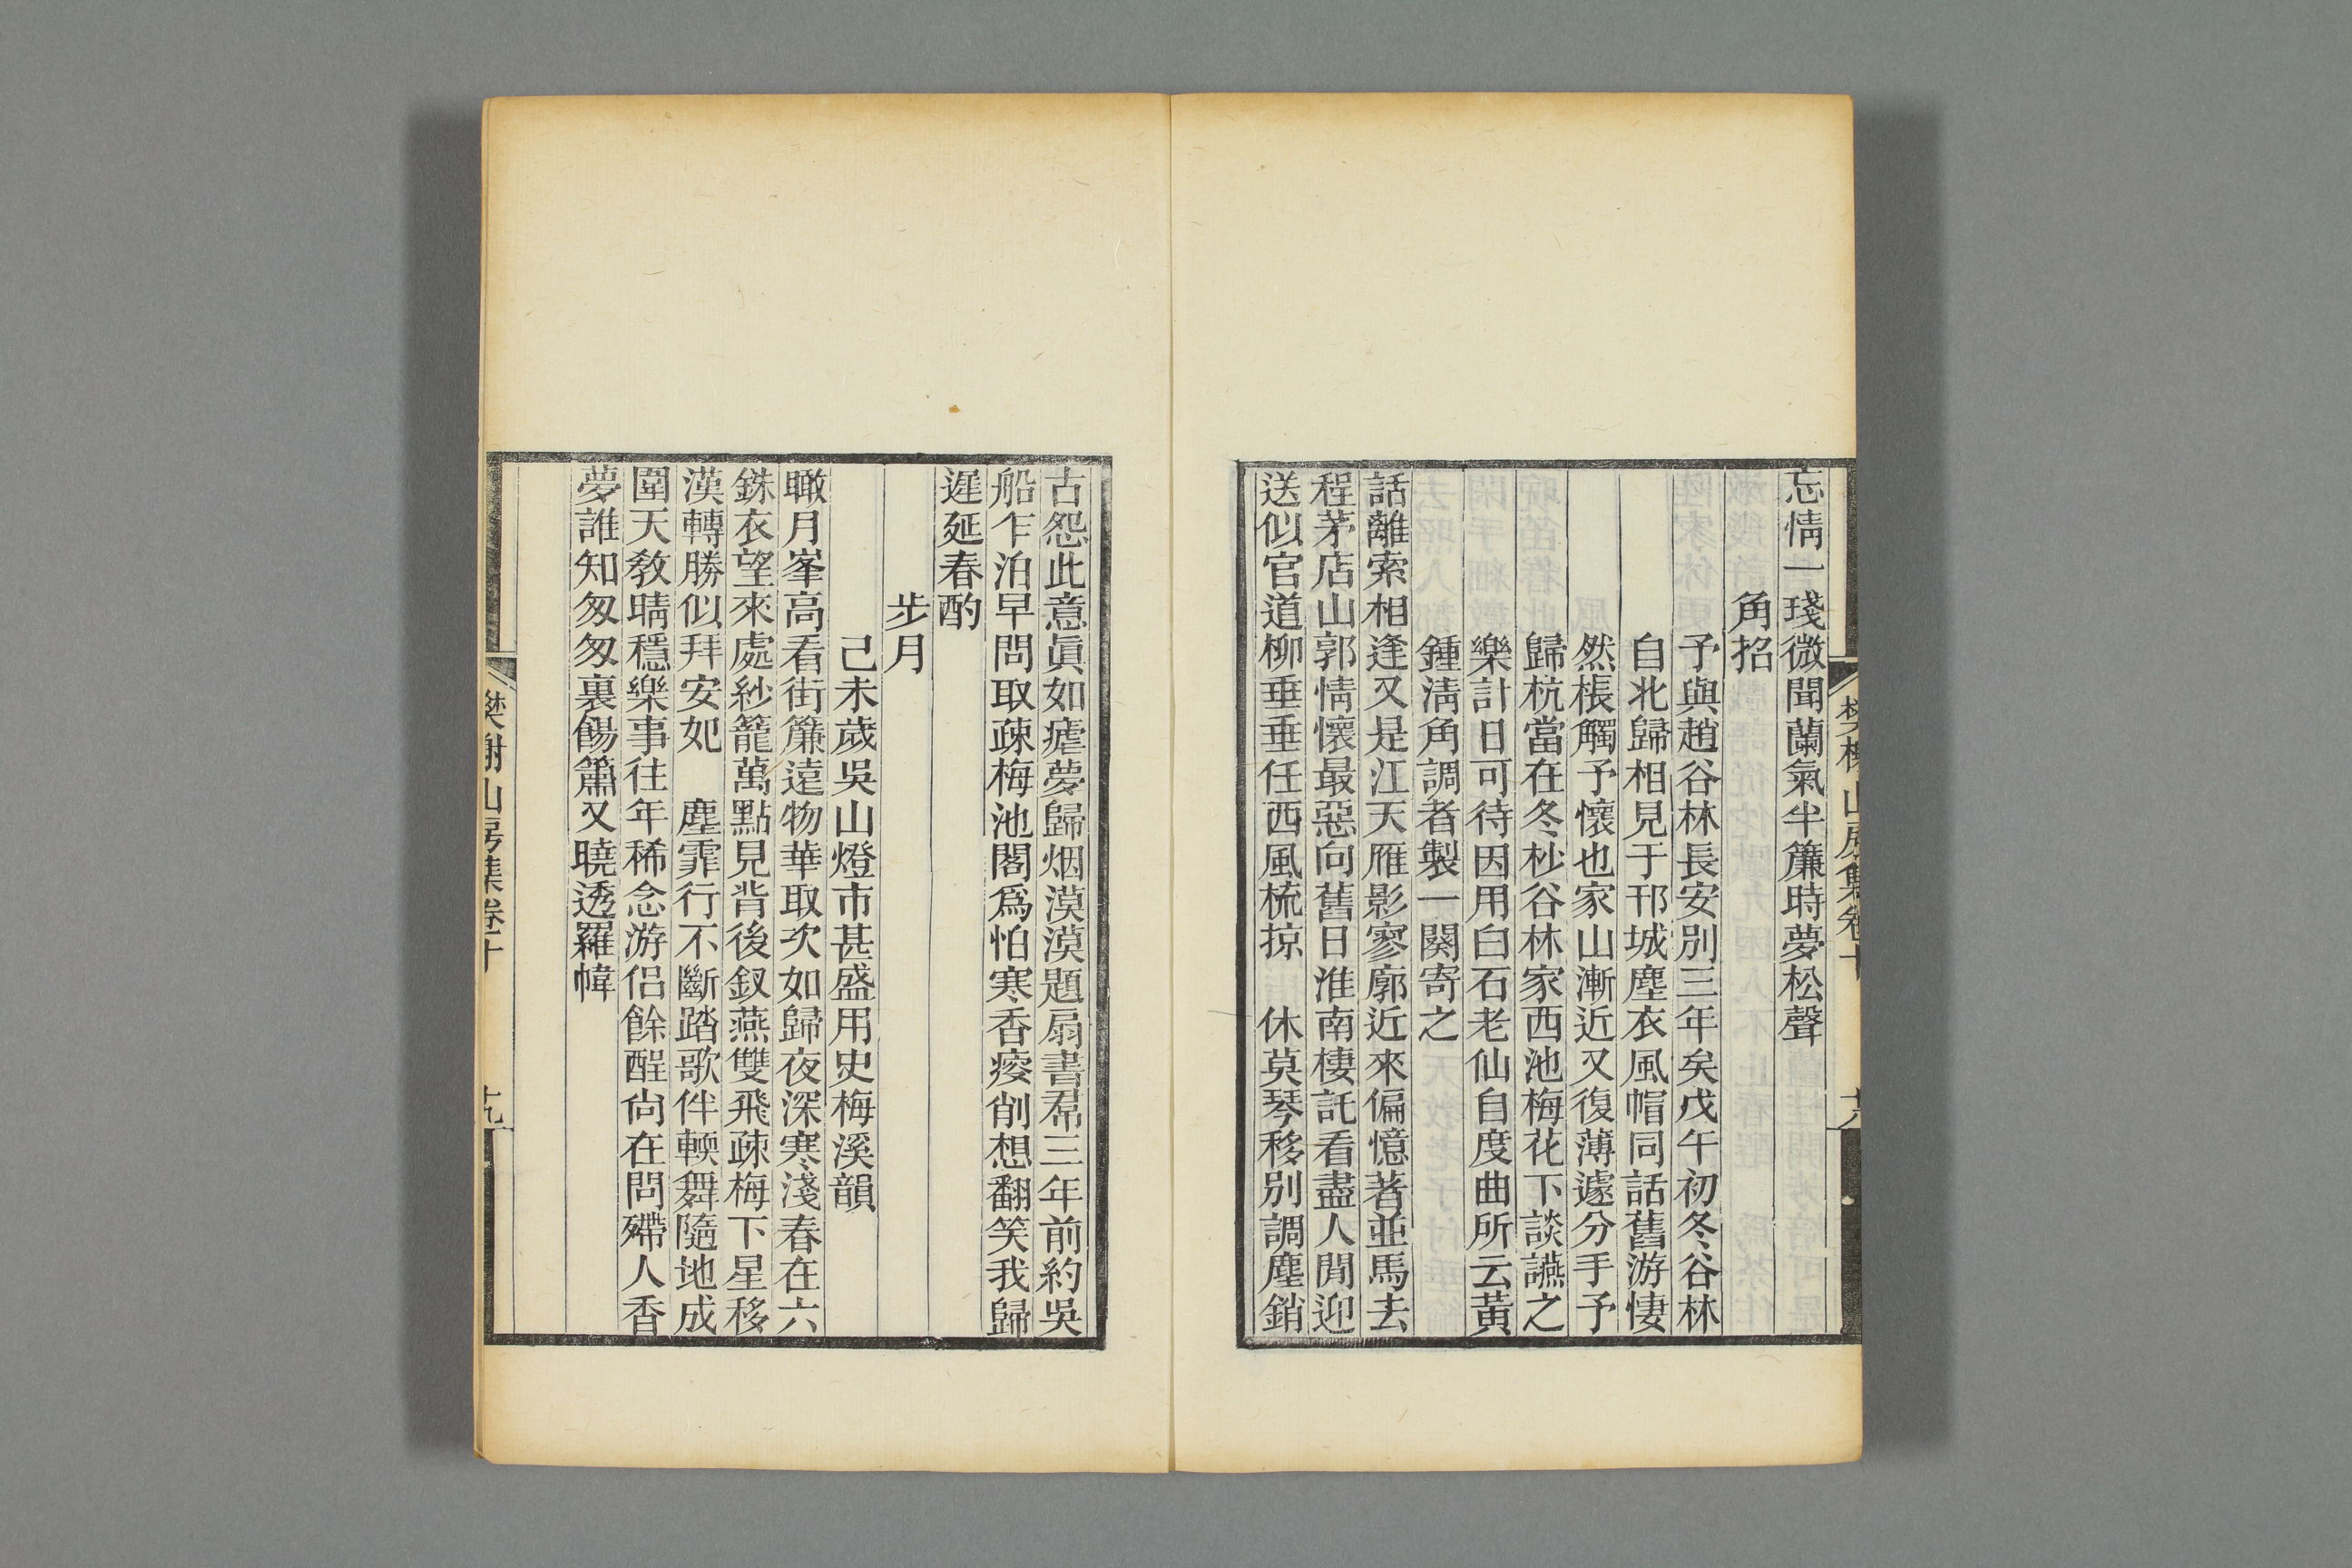 忘情一琖微聞蘭氣半簾時夢松聲
角招
予與趙谷林長安別三年矣戊午初冬谷林
自北歸相見于邗城塵衣風帽同話舊游悽
然棖觸予懷也家山漸近又復薄遽分手予
歸杭當在冬杪谷林家西池梅花下談讌之
樂計日可待因用白石老仙自度曲所云黃
鍾淸角調者製一闋寄之
話離索相逢又是江天雁影寥廓近來偏憶著並馬去
程茅店山郭情懷最惡向舊日淮南棲託看盡人閒迎
送似官道柳垂垂任西風梳掠　休莫琴移別調塵銷
古怨此意眞如瘧夢歸烟漠漠題扇書帬三年前約吳
船乍泊早問取疎梅池閣爲怕寒香痠削想翻笑我歸
遲延春酌
步月
己未歲吳山燈市甚盛用史梅溪韻
瞰月峯高看街簾遠物華取次如歸夜深寒淺春在六
銖衣望來處紗籠萬點見背後釵燕雙飛疎梅下星移
漢轉勝似拜安妃　塵霏行不斷踏歌伴輭舞隨地成
圍天敎晴穩樂事往年稀念游侣餘酲尙在問殢人香
夢誰知匆匆裏餳簫又曉透羅幃
樊榭山房集卷十
十九